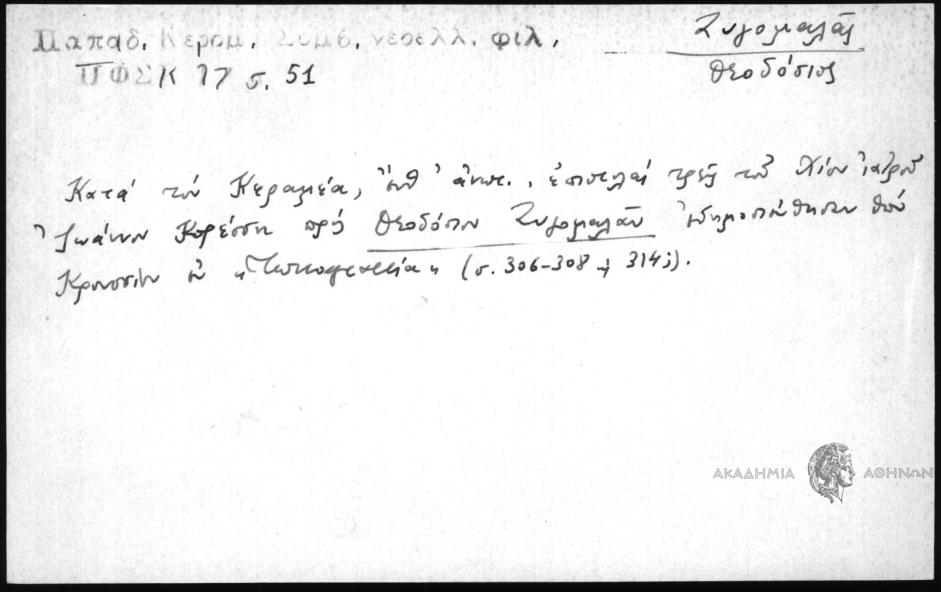 Παπαδ. Κεραμ. Συμβ. νεοελλ. φιλ.
ΠΦΣΚ 17 σ. 51
Ζυγομαλᾶς
Θεοδόσιος
Κατά τόν Κεραμέα, ἐπιστολαί τρεῖς τοῦ Χίου ἰατροῦ
Ἰωάννου Κορέσση πρός Θεοδόσιον Ζυγομαλᾶν ἐδημοσιεύθησαν ὑπό
Κρουσίου ἐν (σ. 306-308 + 314;).
ΑΚΑΔΗΜΙΑ ΑΘΗΝΩΝ